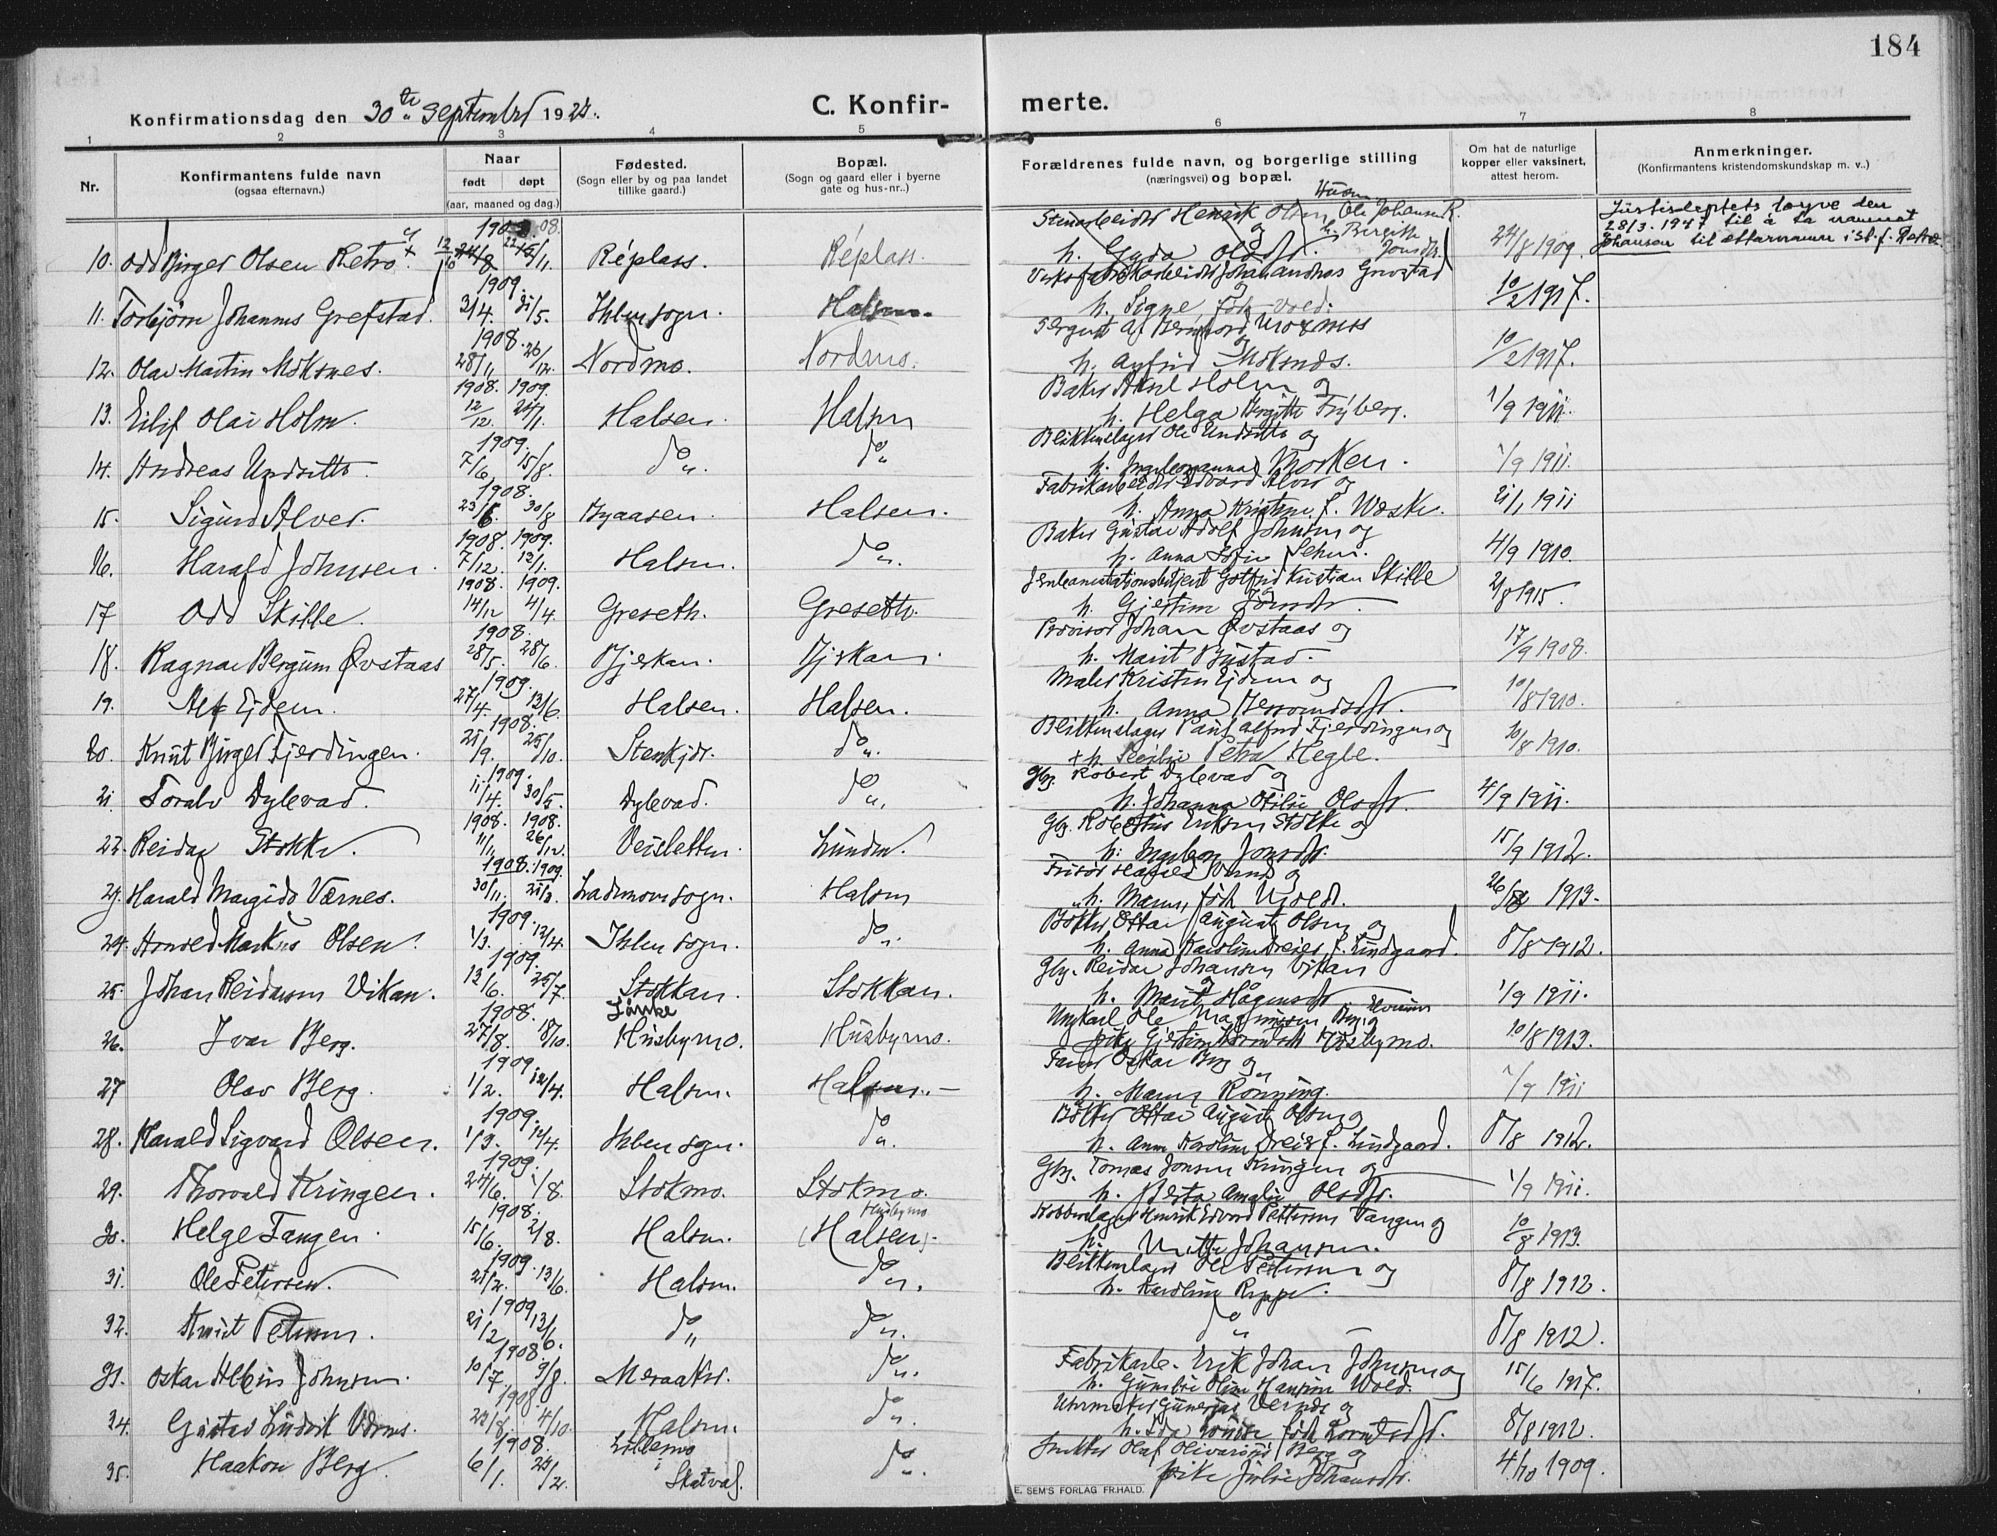 184
Konfirmationsdag den 30te September 1923.
C. Konfirmerte.
1 2 3 4 5 6 7 8
Nr.
Konfirmantens fulde navn
(ogsaa efternavn.)
Naar
født døpt
(aar, maaned og dag.)
Fødested.
(Sogn eller by og paa landet
tillike gaard.)
Bopæl.
(Sogn og gaard eller i byerne
gate og hus-nr..)
Forældrenes fulde navn, og borgerlige stilling
(næringsvei) og bopæl.
Om hat de naturlige
kopper eller vaksinert,
attest herom.
Anmerkninger.
(Konfirmantens kristendomskundskap m. v..)
Justisdeptets løyve den
28/3. 1947 til å ta namnet
Johansen til etternamn i st. f. Retrø.
Stenarbeider Henrik Olsen Ole Johansen R.
10. Odd Birger Olsen Retrø Réplass. Réplass. h. Gyda Olsdtr. h. Birgitte Jonsdtr. 24/8 1909.
1909.
11. Torbjørn Johannes Grefstad. 3/4. 31/5. Ihlen sogn. Halsen. h. Signe, født Vold. 10/2 1917.
1908.
12. Olav Martin Moksnes. 28/11 26/12. Nordmo. Nordmo. h. Anfrid Moksnes. 10/2 1917.
1908. 1909. Baker Aksel Holm og
13. Eilif Olai Holm. 12/12. 24/1. Halsen. Halsen h. Helga Birgitte Fryberg. 1/9 1911.
1909. Blikkenslager Ole Undseth og
14. Andreas Undseth 7/6. 15/8. do. do. h. Ingeborganna Morken. 1/9 1911.
1908. Fabrikarbeider Edvard Alver og
15. Sigurd Alver. 23/6. 30/8 Byaasen. Halsen. h. Anna Kristine f. Waske. 21/1 1911
1908. 1909. Baker Gustav Adolf Johnsen og
16. Harald Johnsen. 7/12. 12/1. Halsen. do. h. Anna Sofie 4/9 1910.
1908. 1909. Gotfred Kristian Skille
17 Odd Skille. 14/12 4/4. Greseth. Greseth. h. Gjertine Jonsdtr. 21/8 1915.
1908. Provisor Johan Øvstaas og
18. Ragnar Bergum Øvstaas 28/5. 28/6. Bjerkan. Bjerkan. h. Marit Bustad. 17/9 1908.
1909. Maler Kristen Ejdem og
19. Alf Ejdem. 27/4. 13/6. Halsen. Halsen. h. Anna 10/8 1910.
1908. Blikkenslager Paul Alfred Fjerdingen og
20. Knut Birger Fjerdingen. 21/9. 25/10. Stenkjær. do. + h. Petra Hegle. 20/8 1910.
1909. Gbr. Robert Dylevad og
21. Toralv Dylevad. 11/4. 30/5. Dylevad. do. h. Johanna Otilie Olsdtr. 4/9 1911.
1908. 1908. Gbr. Eriksen Stokke og
22. Reidar Stokke. 11/11 26/12. Veisletten. Lunden. h. Ingeborg Jonsdtr. 15/9 1912.
1908. 1909. Frisør og
23. Harald Margido Værnes. 30/11. 21/3. Lademoen sogn. Halsen h. Maren, født Uvold. 26/8 1913.
1909. Bøkker Ottar August Olsen og
24. Arnold Markus Olsen. 1/3. 12/4. Ihlen sogn. do. h. Anna Karoline Dreier f. Lindgaard. 8/8 1912.
1909. Gbr. Reidar Johansen Vikan
25. Johan Reidarsen Vikan. 13/6. 25/7. Stokkan. Stokkan. h. Marit Hågensdtr. 1/9 1911.
1908. Lånke Ungkarl Ole Magnusen Berg
26. Ivar Berg. 27/8. 18/10. Husbymo. Husbymo. pike Husbymo. 10/8 1913.
1909. Oskar Berg og
27 Olav Berg. 1/2. 12/4. Halsen. Halsen. h. Maren Rønning. 1/9 1911
1909. Bøkker Ottar August Olsen og
28. Harald Sigvard Olsen. 1/3. 12/4. Ihlen sogn. do. h. Anna Karoline Dreier f. Lindgaard. 8/8 1912.
1909. Gbr. Tomas Jonsen Kringen og
29. Thorvald Kringen. 24/6. 1/8. Stokmo. Stokmo. h. Berta Amalie Olsdtr. 1/9 1911.
1908. Husbymo Kobberslager Henrik Edvard Pettersen Tangen og
30. Helge Tangen. 15/6. 2/8. Halsen. (Halsen). h. Johansen. 10/8 1913.
1909. Blikkenslager Ole Petersen og
31. Ole Petersen. 21/2. 13/6. Halsen. do. h. Karoline Rippe. 8/8 1912.
1909
32. Knut Petersen. 21/2 13/6. do. do. do. 8/8 1912.
1908. Fabrikarb. Erik Johan Johnsen og
33. Oskar Albin Johnsen. 10/7. 9/8. Meraaker. do. h. Gunelie Oline Hansine Wold. 15/6 1917.
1908 Uhrmaker Gunerius Vernes og
34. Gustav Ludvik Værnes. 23/8. 4/10. Halsen. do. h. Ida Louise født Lorntsdtr. 8/8 1912.
1908. Smukker Olaf Olivarsøn Berg og
35. Haakon Berg. 6/1. 23/2. Lillemo i Skatval. do. pike Julie Johansdtr. 4/10 1909.
E. SEM'S FORLAG FR.HALD.